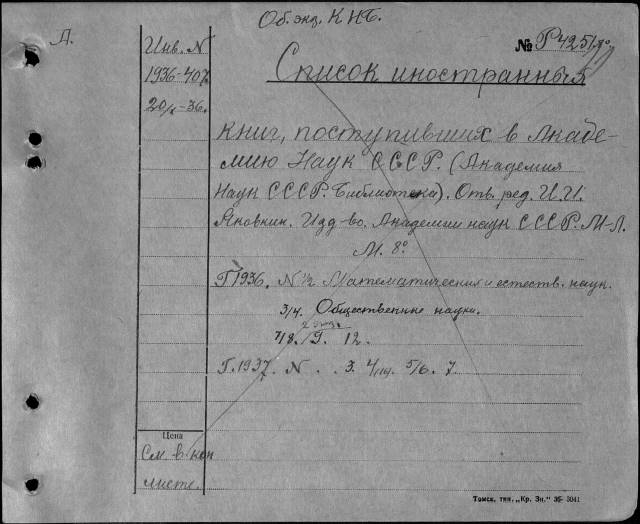 Об. экз. К Н Б.
Д.
Инв. N
1936-407
20/X-36.
№ Г 4251
Список иностранных
книг, поступивших в Акаде-
мию Наук СССР. (Академия
Наук СССР. Библиотека). Отв. ред. И.И.
Яковкин. Изд-во. Академии наук СССР. М-Л.
М. 8°
Г 1936. N 1/2 Математических и естеств. наук.
3/4. Общественные науки.
2 экз.
7/8. 9. 12.
Г. 1937. N . . 3. 4 5/6. 7.
Цена
См в кон
листе.
Томск, тип. „Кр. Зн." 36- 3041